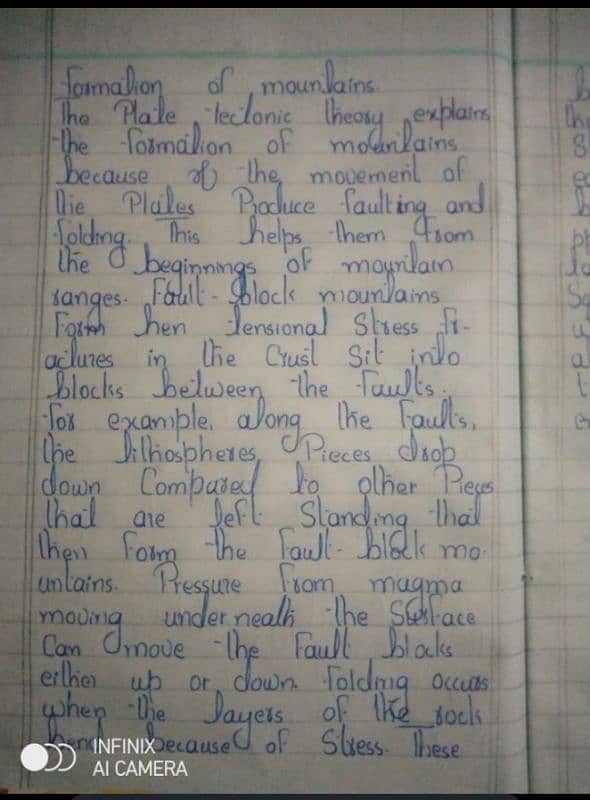 formation of mountains.
The Plate tectonic theory explains
the formation of mountains
because of the movement of
the Plates Produce faulting and
folding. This helps them from
the beginnings of mountain
ranges. Fault-block mountains
Form hen tensional Stress fr-
actures in the Crust Sit into
blocks between the faults.
for example, along the Faults,
the lithospheres Pieces drop
down Compared to other Pieces
that are left Standing that
then form the fault-block mo-
untains. Pressure from magma
moving underneath the Surface
Can move the Fault blocks
either up or down. folding occurs
when the layers of the rock
bend because of Stress. These
INFINIX
AI CAMERA